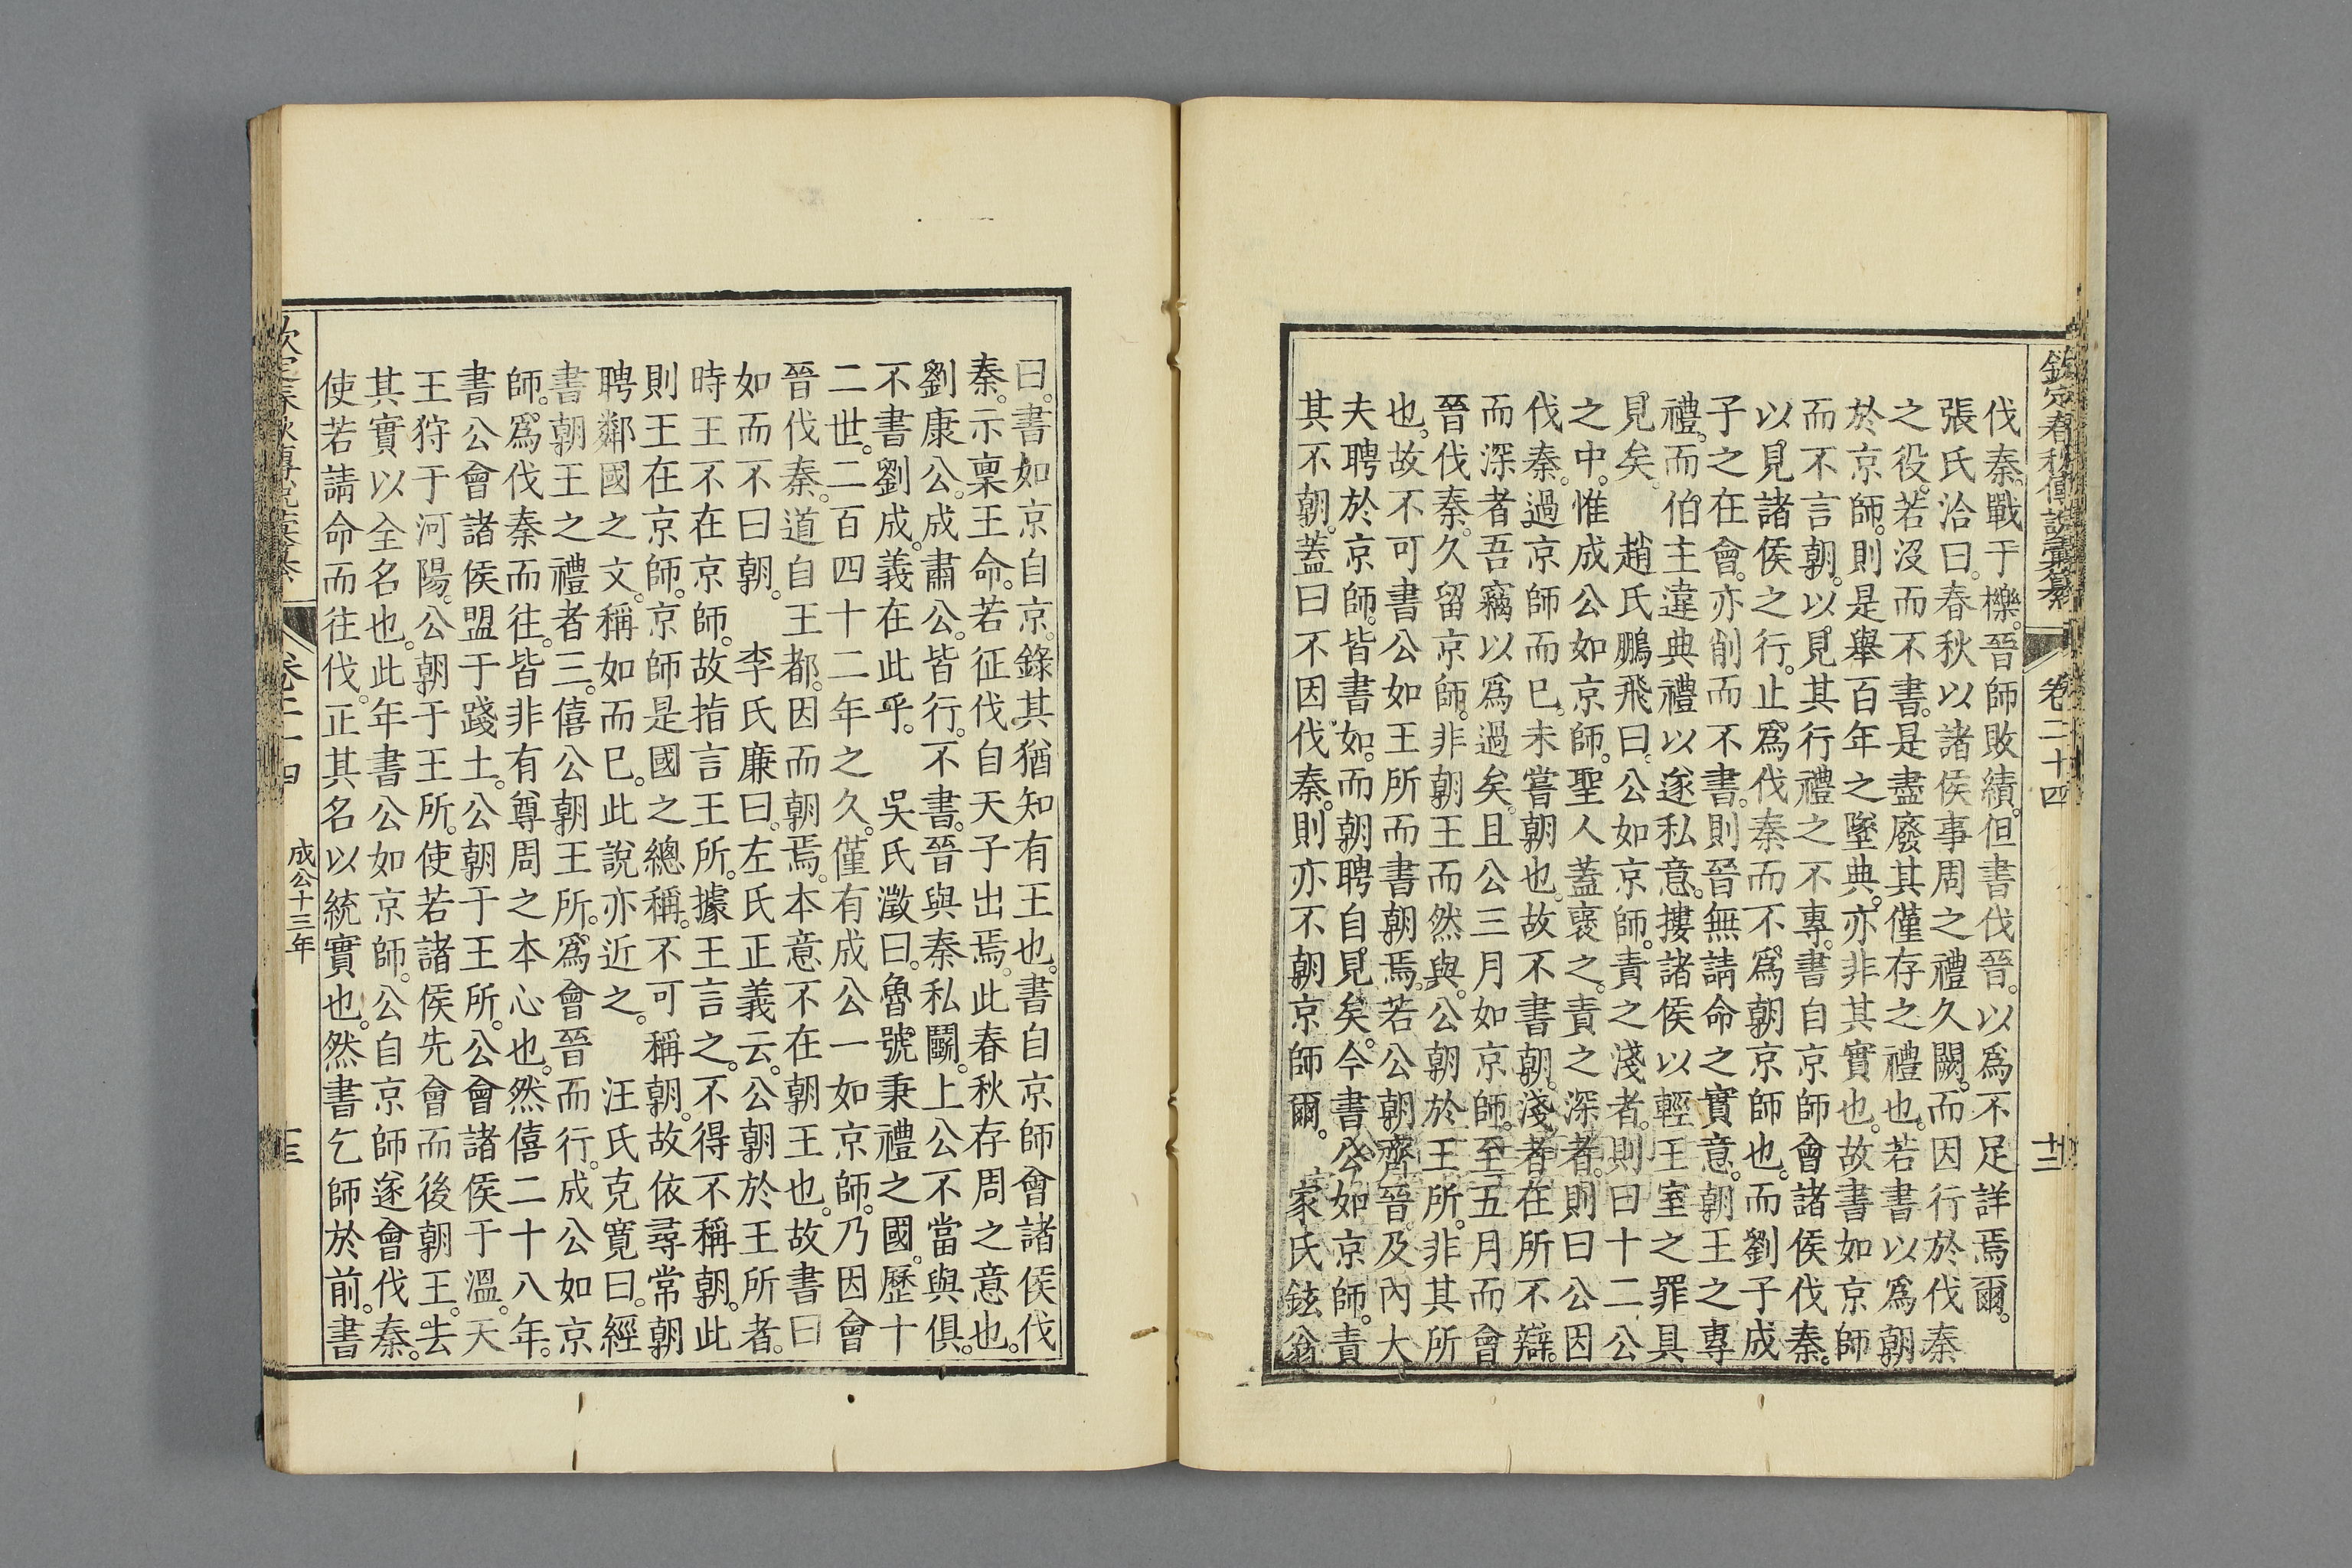 欽定春秋傳說彙纂 卷二十四 十二
伐秦。戰于櫟。晉師敗績。但書伐晉。以爲不足詳焉爾。
張氏洽曰。春秋以諸侯事周之禮久闕。而因行於伐秦
之役。若沒而不書。是盡廢其僅存之禮也。若書以爲朝
於京師。則是舉百年之墜典。亦非其實也。故書如京師
而不言朝。以見其行禮之不專。書自京師會諸侯伐秦。
以見諸侯之行。止爲伐秦而不爲朝京師也。而劉子成
子之在會。亦削而不書。則晉無請命之實意。朝王之專
禮。而伯主違典禮以遂私意。摟諸侯以輕王室之罪具
見矣。 趙氏鵬飛曰。公如京師。責之淺者。則曰十二公
之中。惟成公如京師。聖人蓋褒之。責之深者。則曰公因
伐秦。過京師而已。未嘗朝也。故不書朝。淺者在所不辯。
而深者吾竊以爲過矣。且公三月如京師。至五月而會
晉伐秦。久留京師。非朝王而然與。公朝於王所。非其所
也。故不可書公如王所而書朝焉。若公朝齊晉。及內大
夫聘於京師。皆書如。而朝聘自見矣。今書公如京師。責
其不朝。蓋曰不因伐秦。則亦不朝京師爾。 家氏鉉翁
曰。書如京自京。錄其猶知有王也。書自京師會諸侯伐
秦。示稟王命。若征伐自天子出焉。此春秋存周之意也。
劉康公。成肅公。皆行。不書。晉與秦私鬬。上公不當與俱。
不書劉成。義在此乎。 吳氏澂曰。魯號秉禮之國。歷十
二世。二百四十二年之久。僅有成公一如京師。乃因會
晉伐秦。道自王都。因而朝焉。本意不在朝王也。故書曰
如而不曰朝。 李氏廉曰。左氏正義云。公朝於王所者。
時王不在京師。故指言王所。據王言之。不得不稱朝。此
則王在京師。京師是國之總稱。不可稱朝。故依尋常朝
聘鄰國之文。稱如而已。此說亦近之。 汪氏克寬曰。經
書朝王之禮者三。僖公朝王所。爲會晉而行。成公如京
師。爲伐秦而往。皆非有尊周之本心也。然僖二十八年。
書公會諸侯盟于踐土。公朝于王所。公會諸侯于溫。天
王狩于河陽。公朝于王所。使若諸侯先會而後朝王。去
其實以全名也。此年書公如京師。公自京師遂會伐秦。
使若請命而往伐。正其名以統實也。然書乞師於前。書
欽定春秋傳說彙纂 卷二十四 成公十三年 十三